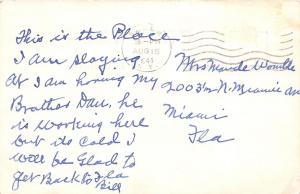 This is the Place
I am staying
At I am having my
Brother Dan, he
is working here
but its cold I
will be Glad to
get Back to Fla
Bill
AUG 15
Mrs Maude
2003 N. Miami
Miami
Fla